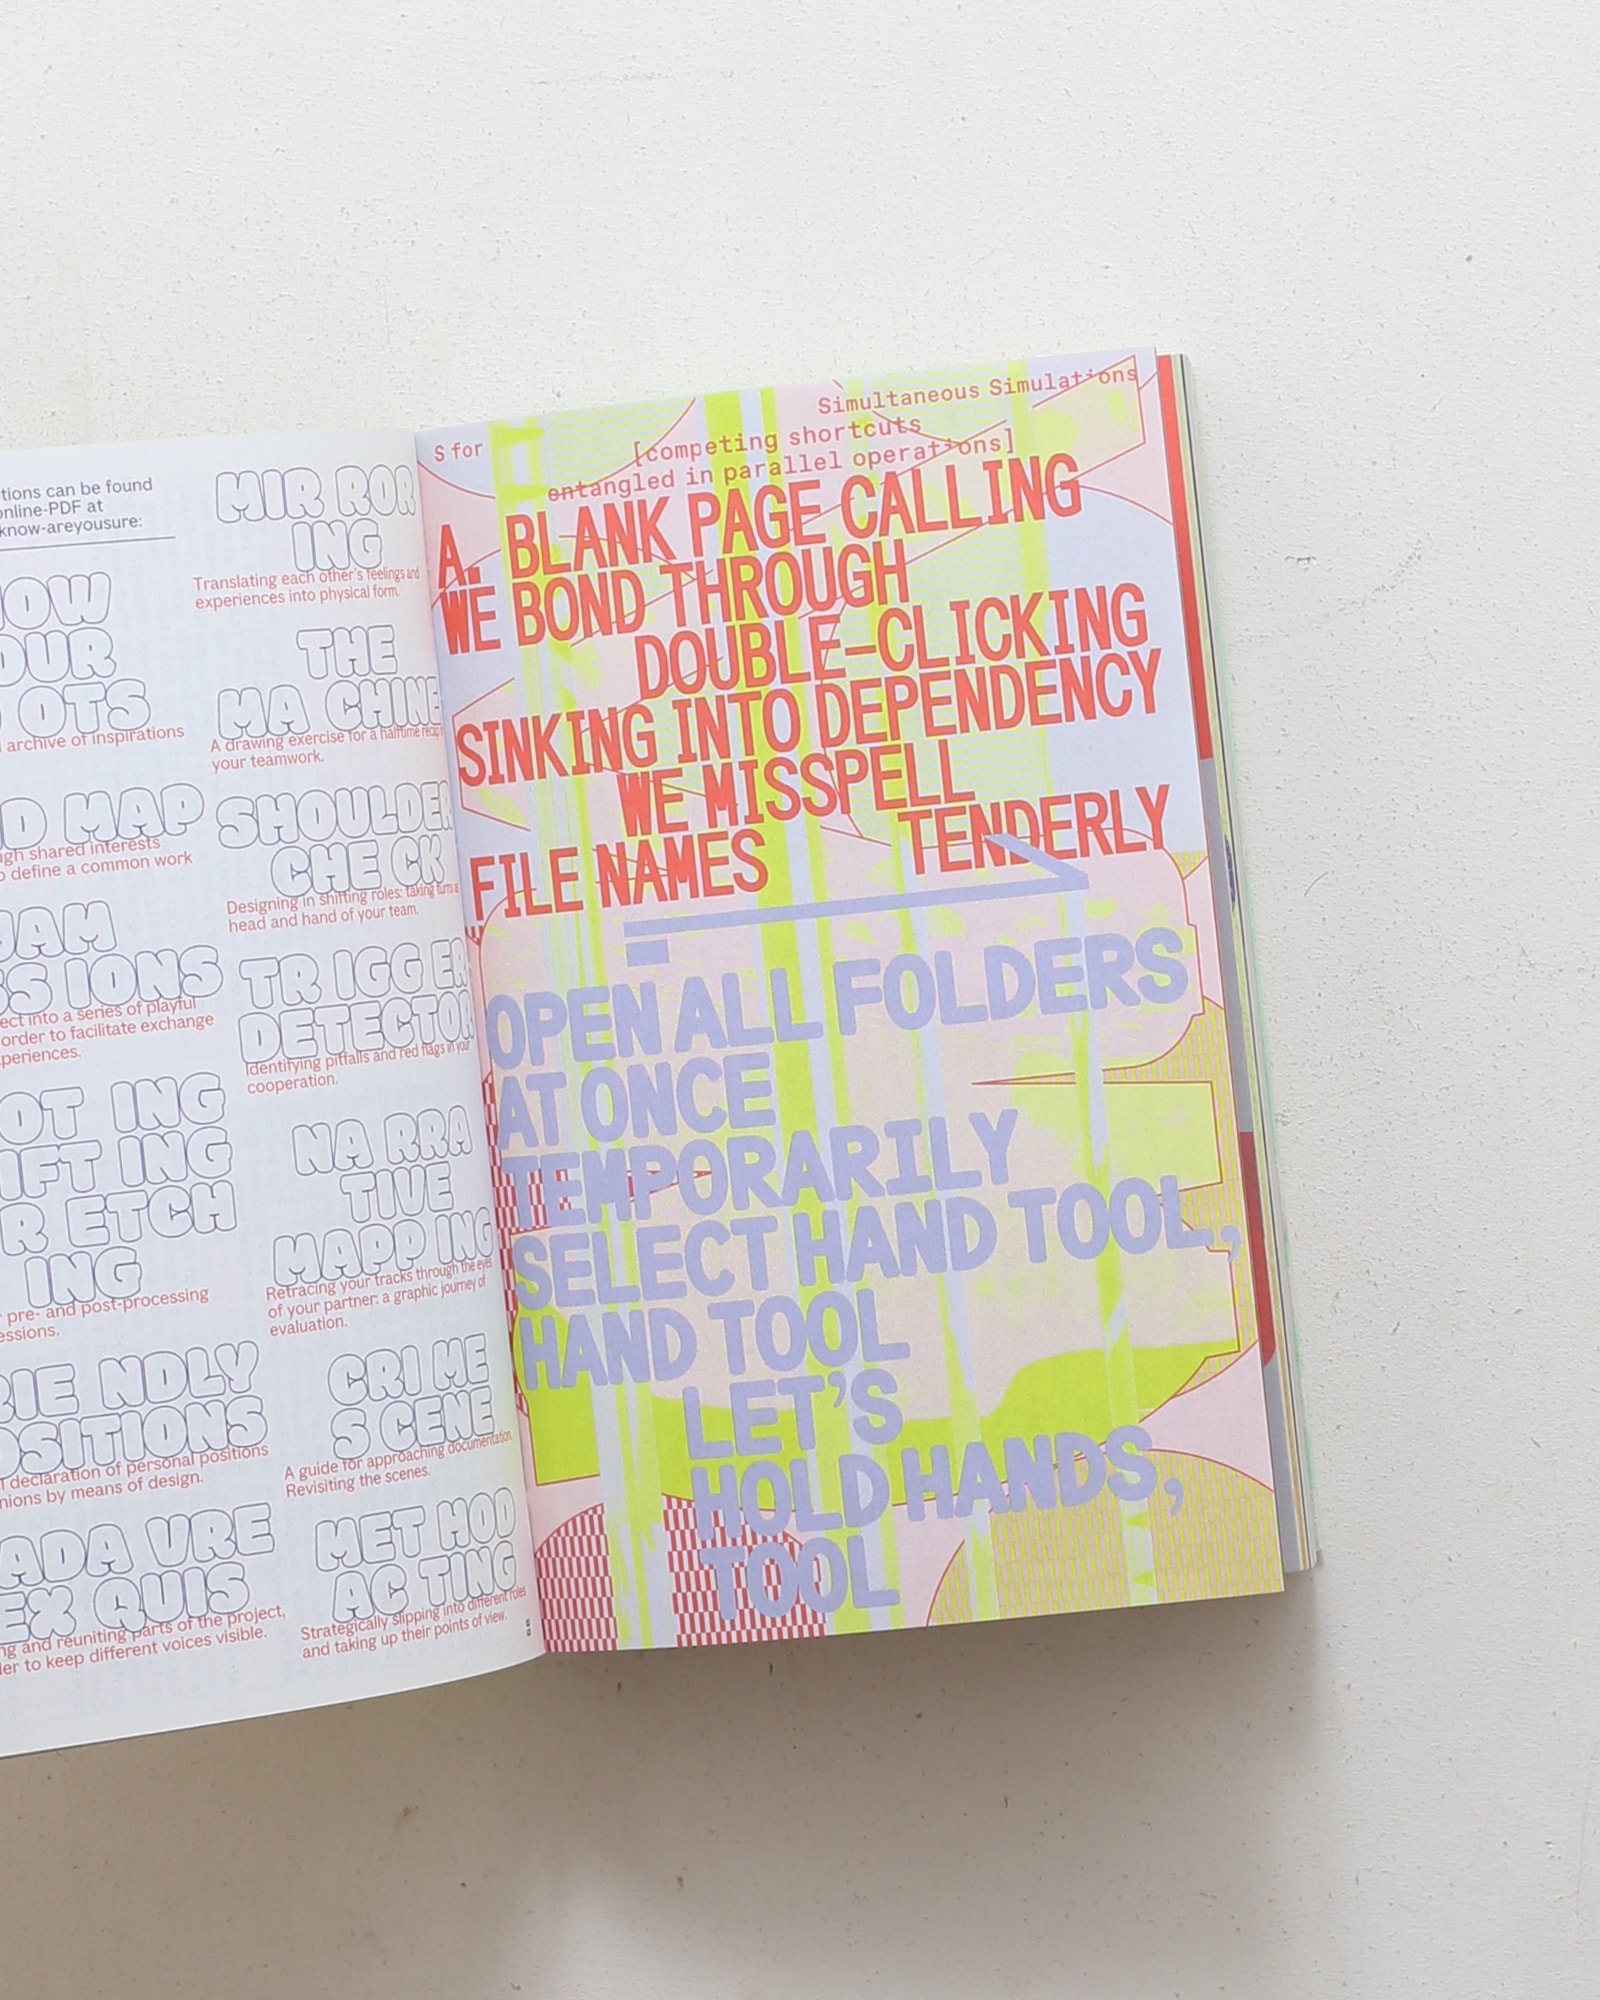 tions can be found
online-PDF at
know-areyousure:
OW
OUR
OTS
archive of inspirations
D MAP
ugh shared interests
o define a common work
AM
SS IONS
ect into a series of playful
order to facilitate exchange
periences.
OT ING
IFT ING
R ETCH
ING
pre- and post-processing
essions.
RIE NDLY
OSITIONS
declaration of personal positions
nions by means of design.
ADA VRE
EX QUIS
ng and reuniting parts of the project,
der to keep different voices visible.
MIR ROR
ING
Translating each other's feelings and
experiences into physical form.
THE
MA CHINE
A drawing exercise for a halftime recap
your teamwork.
SHOULDER
CHE CK
Designing in shifting roles: taking turns a
head and hand of your team.
TR IGG ER
DETECTOR
Identifying pitfalls and red flags in your
cooperation.
NA RRA
TIVE
MAPP ING
Retracing your tracks through the eyes
of your partner: a graphic journey of
evaluation.
CRI ME
S CENE
A guide for approaching documentation.
Revisiting the scenes.
MET HOD
AC TING
Strategically slipping into different roles
and taking up their points of view.
S for
Simultaneous Simulations
[competing shortcuts
entangled in parallel operations]
A. BLANK PAGE CALLING
WE BOND THROUGH
DOUBLE-CLICKING
SINKING INTO DEPENDENCY
WE MISSPELL
FILE NAMES TENDERLY
OPEN ALL FOLDERS
AT ONCE
TEMPORARILY
SELECT HAND TOOL,
HAND TOOL
LET'S
HOLD HANDS,
TOOL